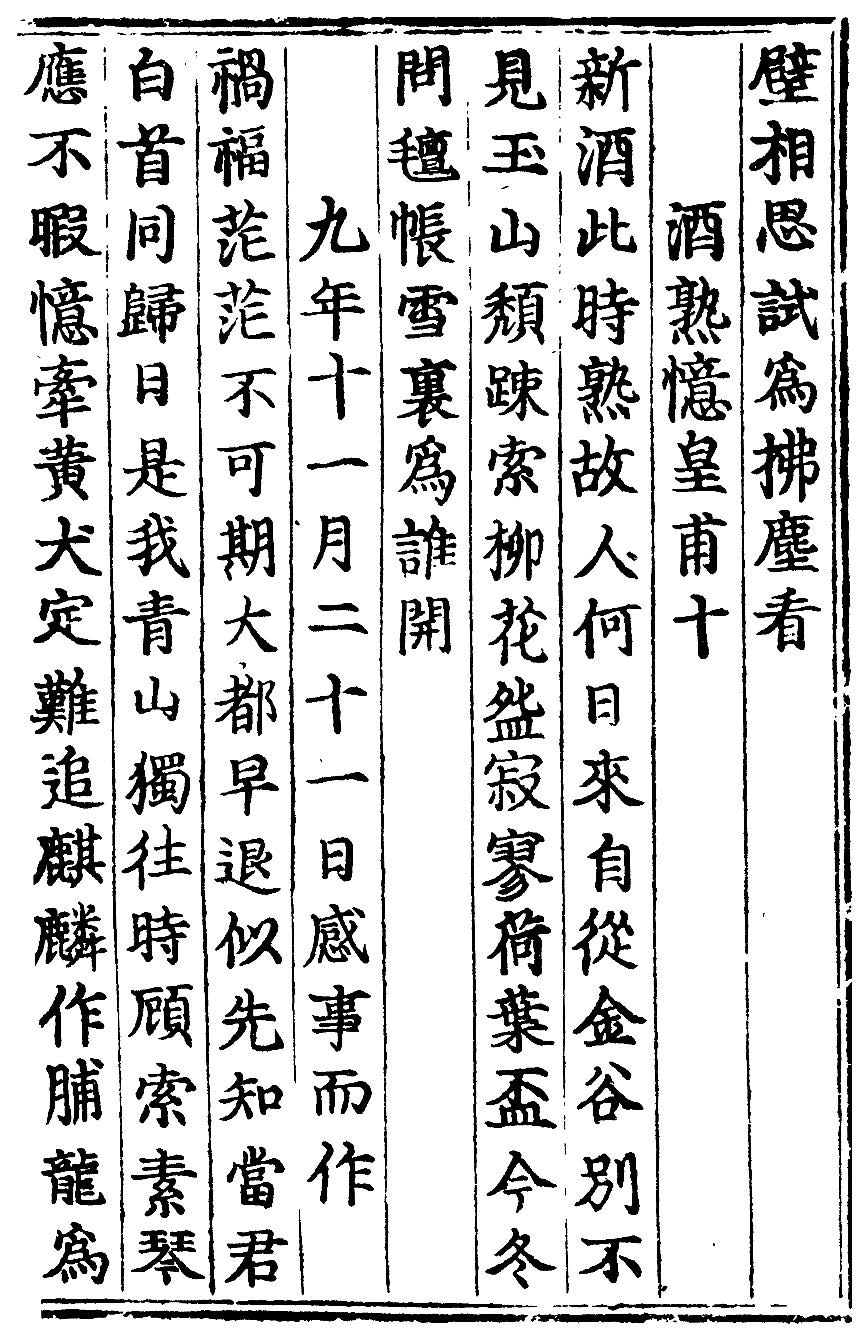 壁相思試爲拂塵看
酒熟憶皇甫十
新酒此時熟故人何日來自從金谷別不
見玉山頹踈索柳花盌寂寥荷葉盃今冬
問氊帳雪裏爲誰開
九年十一月二十一日感事而作
禍福茫茫不可期大都早退似先知當君
白首同歸日是我青山獨往時顧索素琴
應不暇憶牽黃犬定難追麒麟作脯龍爲